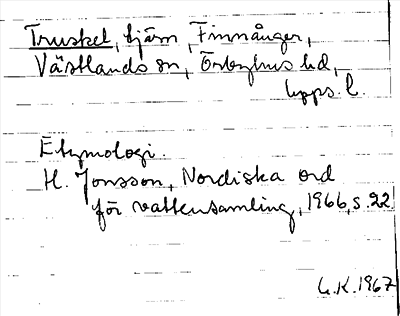 Truskel, tjärn, Finnånger,
Västlands sn, Örbyhus hd,
Upps. l.
Etymologi.
H. Jonsson, Nordiska ord
för vattensamling, 1966, s. 22
G.K. 1967